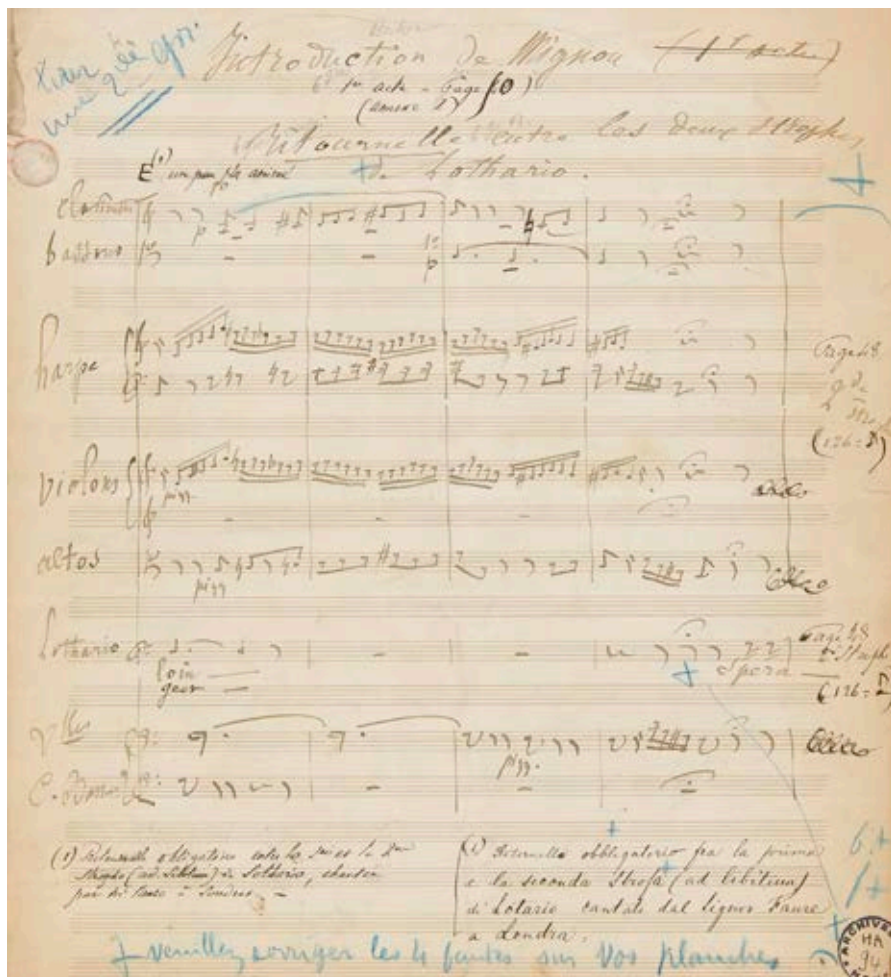 Introduction de Mignon (1r acte)
1er acte - Page 10)
(annexe 1)
Ritournelle entre les deux strophes
de Lothario.
(1) un peu plus animé
clarinettes
bassons
p
1o
p
harpe
Page 48
2de
(126 =
violons
pizz
altos
pizz
Lothario
loin
spera
Page 48
(126 =
Vlles
pizz.
C. Basses
(1) Ritournelle obligatoire entre la 1ère et la 2ème
Strophe (ad libitum) de Lothario, chantée
par Mr Faure à Londres. —
(1) Ritornello obbligatorio fra la prima
e la seconda Strofa (ad libitum)
di Lotario cantate dal Signor Faure
a Londra.
+ veuillez corriger les 4 fautes sur vos planches
ARCHIVES
HA
94